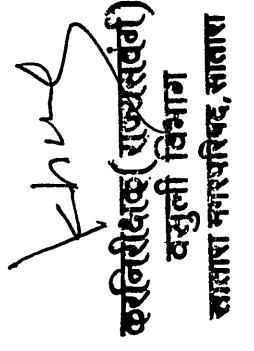 करनिरीक्षक (राज्यसवंर्ग)
वसुली विभाग
सातारा नगरपरिषद, सातारा